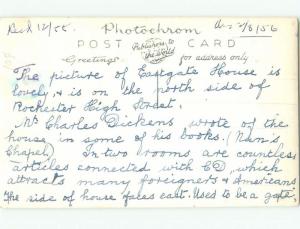 Recd 12/55. Photochrom Ans 2/8/56
POST CARD
Greetings Publishers to the World for address only
The picture of Eastgate House is
lovely, & is on the north side of
Rochester High Street.
Mr Charles Dickens, wrote of the
house in some of his books. (Nun's
Chapel) In two rooms are countless
articles connected with CD, which
attracts many foreigners & Americans
The side of house faces east. Used to be a gate